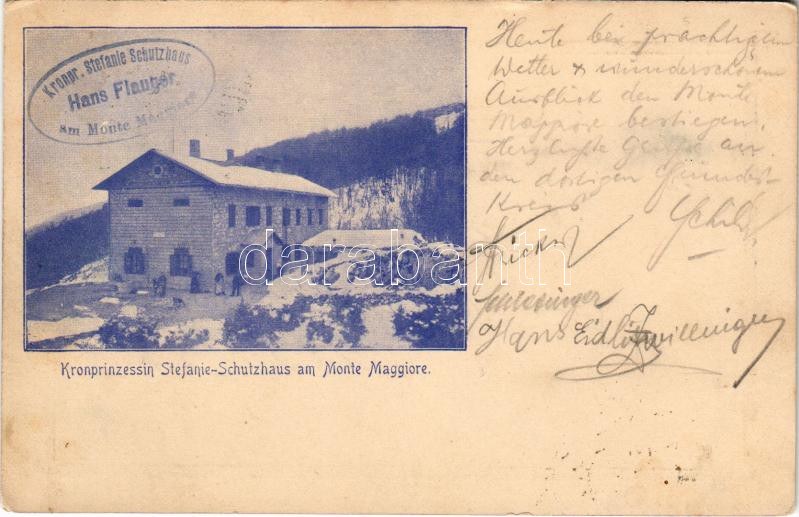 Kronpr. Stefanie Schutzhaus
Hans Flauger
am Monte Maggiore
Heute bei prächtigem
Wetter & wunderschönem
Ausblick den Monte
Maggiore bestiegen.
Herzlichste Grüße an
den dortigen Freundes-
Kreis
Schlesinger
Hans Eidlitz
darabanth
Kronprinzessin Stefanie-Schutzhaus am Monte Maggiore.